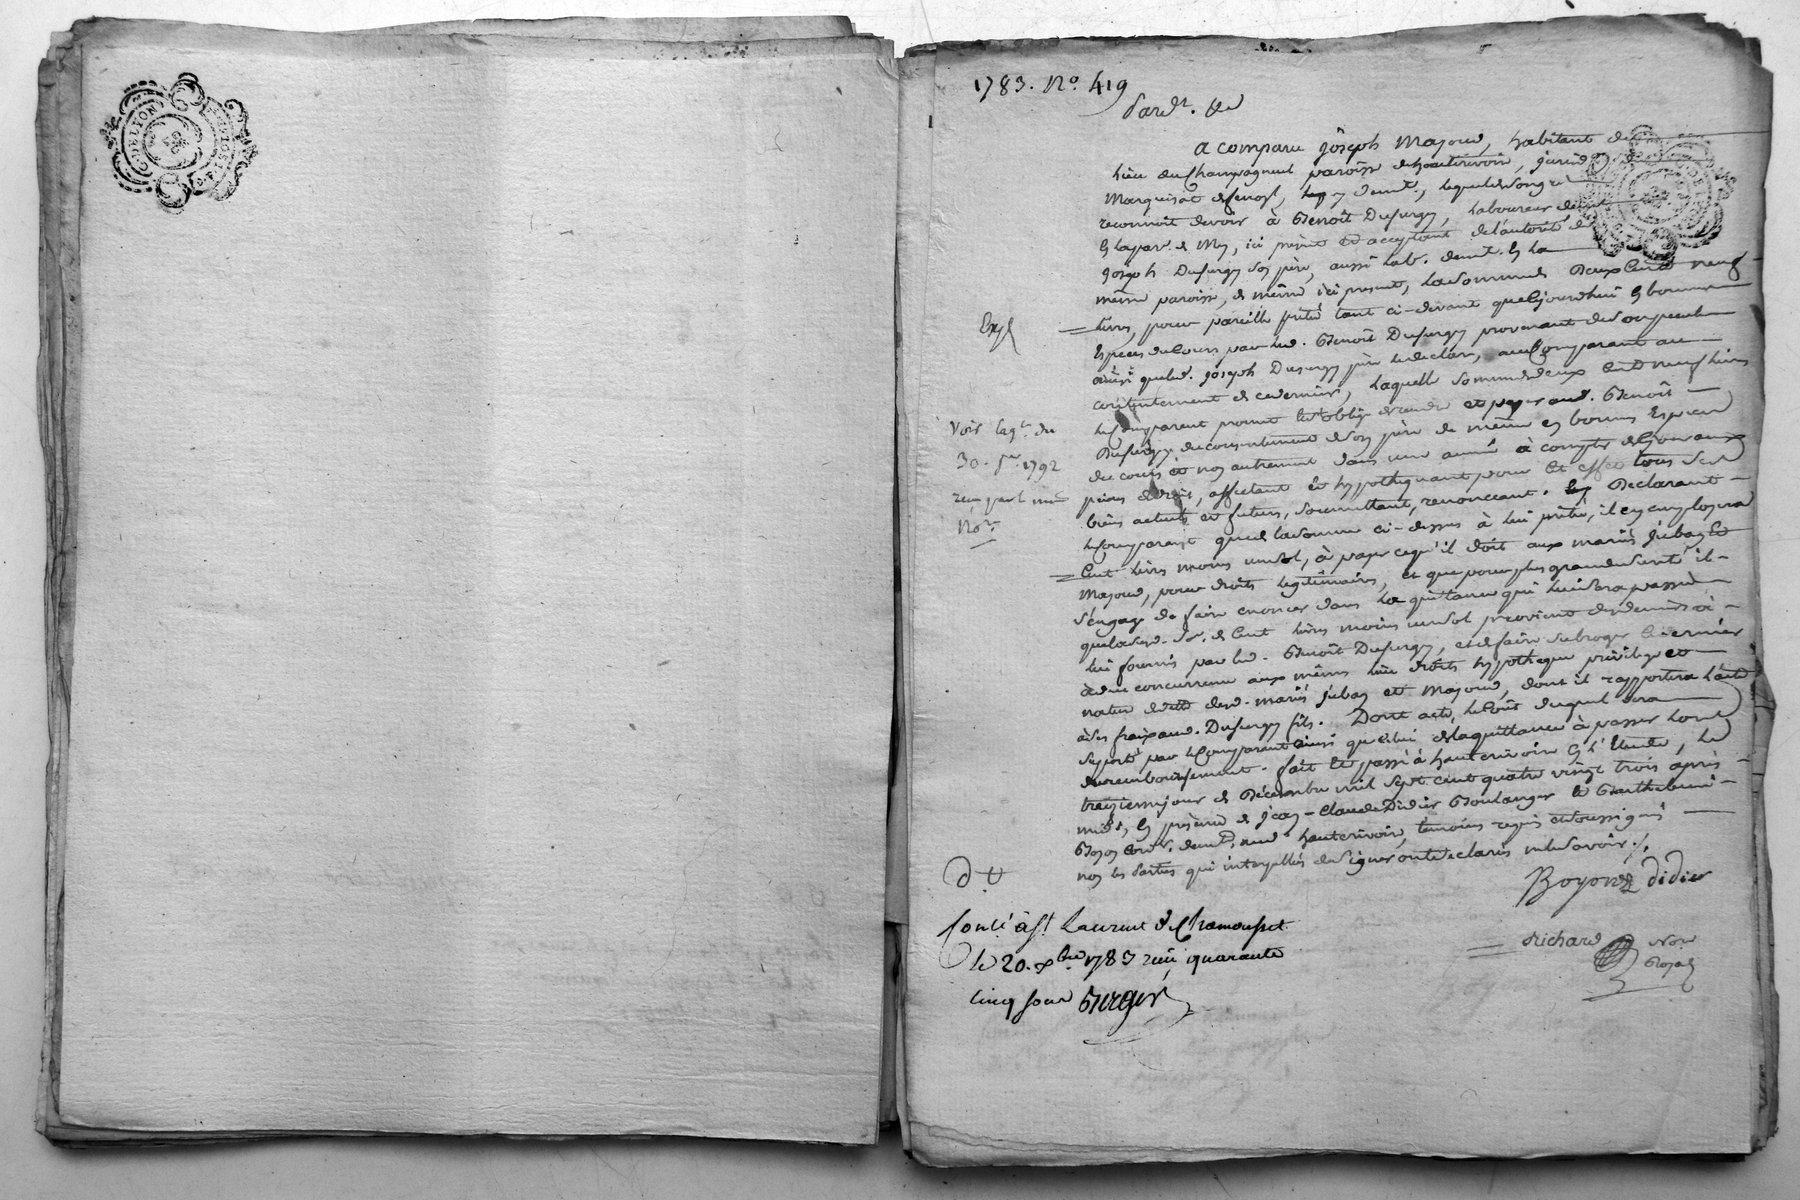 DE LYON
1783. No. 419
Pardt. &c
A comparu Joseph Majoud, habitant du
lieu du Champagneul paroisse d'hauterivoir,
Marquisat de
reconnoit devoir à Benoît Dusurgey, laboureur
ici présent et acceptant de l'autorité de
Joseph Dusurgey son père, aussi lab. demt. en la
même paroisse, de même ici présent, la somme de Deux Cent neuf
livres, pour pareille prêté tant ci-devant que cejourdhui en bonnes
Espèces du Cours par led. Benoît Dusurgey provenant de son pecule
ainsi que led. Joseph Dusurgey père le declare, au Comparant au
contentement de ce dernier, laquelle somme de deux Cent neuf livres
le Comparant promet et s'oblige de rendre et payer aud. Benoît
Dusurgey du consentement de son père de même en bonnes Espèces
du cours et non autrement dans une année à compter de ce jour aux
peines de droit, affectant et hypothéquant pour cet effet tous ses
biens actuels et futurs, soumettant, renonceant. Declarant
le Comparant que de la somme ci-dessus à lui prêtée, il en employera
Cent livres moins un sol, à payer ce qu'il doit aux mariés Juban et
Majoud, pour droits legitimaires, et que pour plus grande sureté il
s'engage de faire enoncer dans la quittance qui lui sera passée
que lad. So. de Cent livres moins un sol provient des deniers à
lui fournis par led. Benoît Dusurgey, et de faire subroger ce dernier
à due concurrence aux mêmes lieu droits hypotheque privilege et
nature de dette desd. mariés Juban et Majoud, dont il rapportera l'acte
à ses fraix aud. Dusurgey fils. Dont acte, le Coût duquel sera
suporté par le Comparant ainsi que celui de la quittance à passer lors
du remboursement. fait et passé à hauterivoir en l'Etude, le
treizieme jour de Décembre mil sept cent quatre vingt trois après
midi, en présence de Jean-Claude Didier Boulanger et Barthelemi
Boyon demts. aud. hauterivoir, temoins requis et soussignés
non les Parties qui interpellées de signer ont declaré ne le savoir ./.
Expé
Voir la qt. du
30. 1792
reçu par le même
Nore.
Boyon Didier
Richard Nore
Royal
Contlé à St. Laurent de Chamousset
le 20. Xbre 1783 reçu quarante
cinq sous Berger